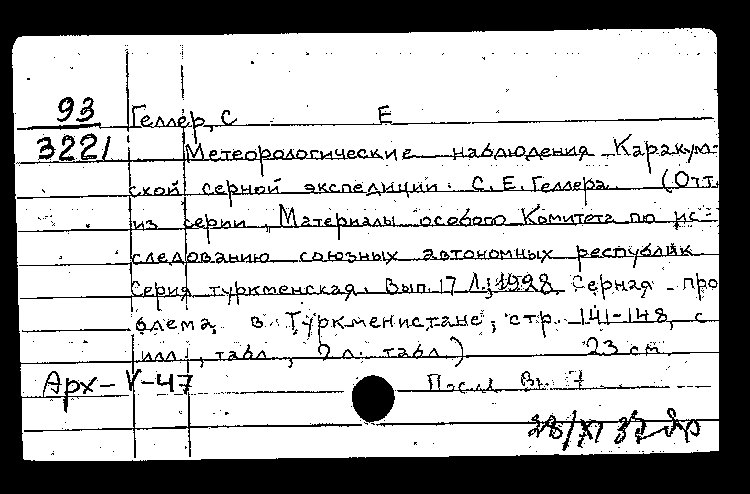 93 Геллер, С Е
3221 Метеорологические наблюдения Каракум-
ской серной экспедиции. С. Е. Геллера. (Отт.
из серии, Материалы особого Комитета по ис=
следованию союзных автономных республик
Серия туркменская. Вып. 17 Л; 1928 Серная про
блема в Туркменистане, стр. 141-148, с
илл., табл., 2 л. табл.) 23 см.
Арх-V-47 После Вы. 7
28/XI 37